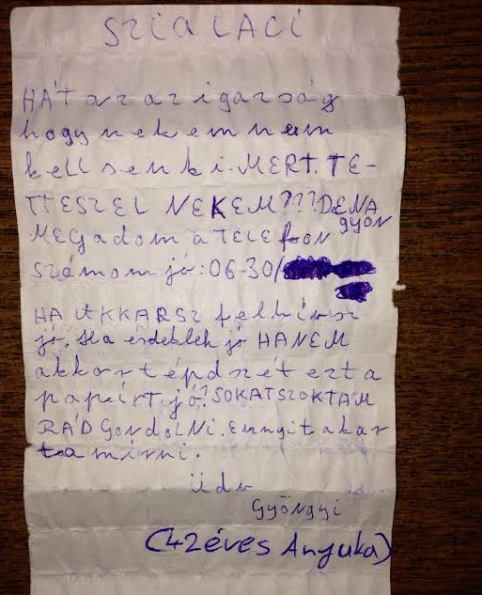 SZIA LACI
HÁT az az igazság
hogy nekem nem
kell senki. MERT. TE-
TTESZEL NEKEM??? DE NA
GYON
MEGADOM A TELEFON
számom jó: 06-30/
HA AKKARSZ felhívsz
jó. Ha érdeklek jó HANEM
akkor tépd szét ezt a
papeírt jó? SOKATSZOKTAM
RÁD GONDOLNI. Ennyit akar
tam írni.
üdv
Gyöngyi
(42 éves Anyuka)